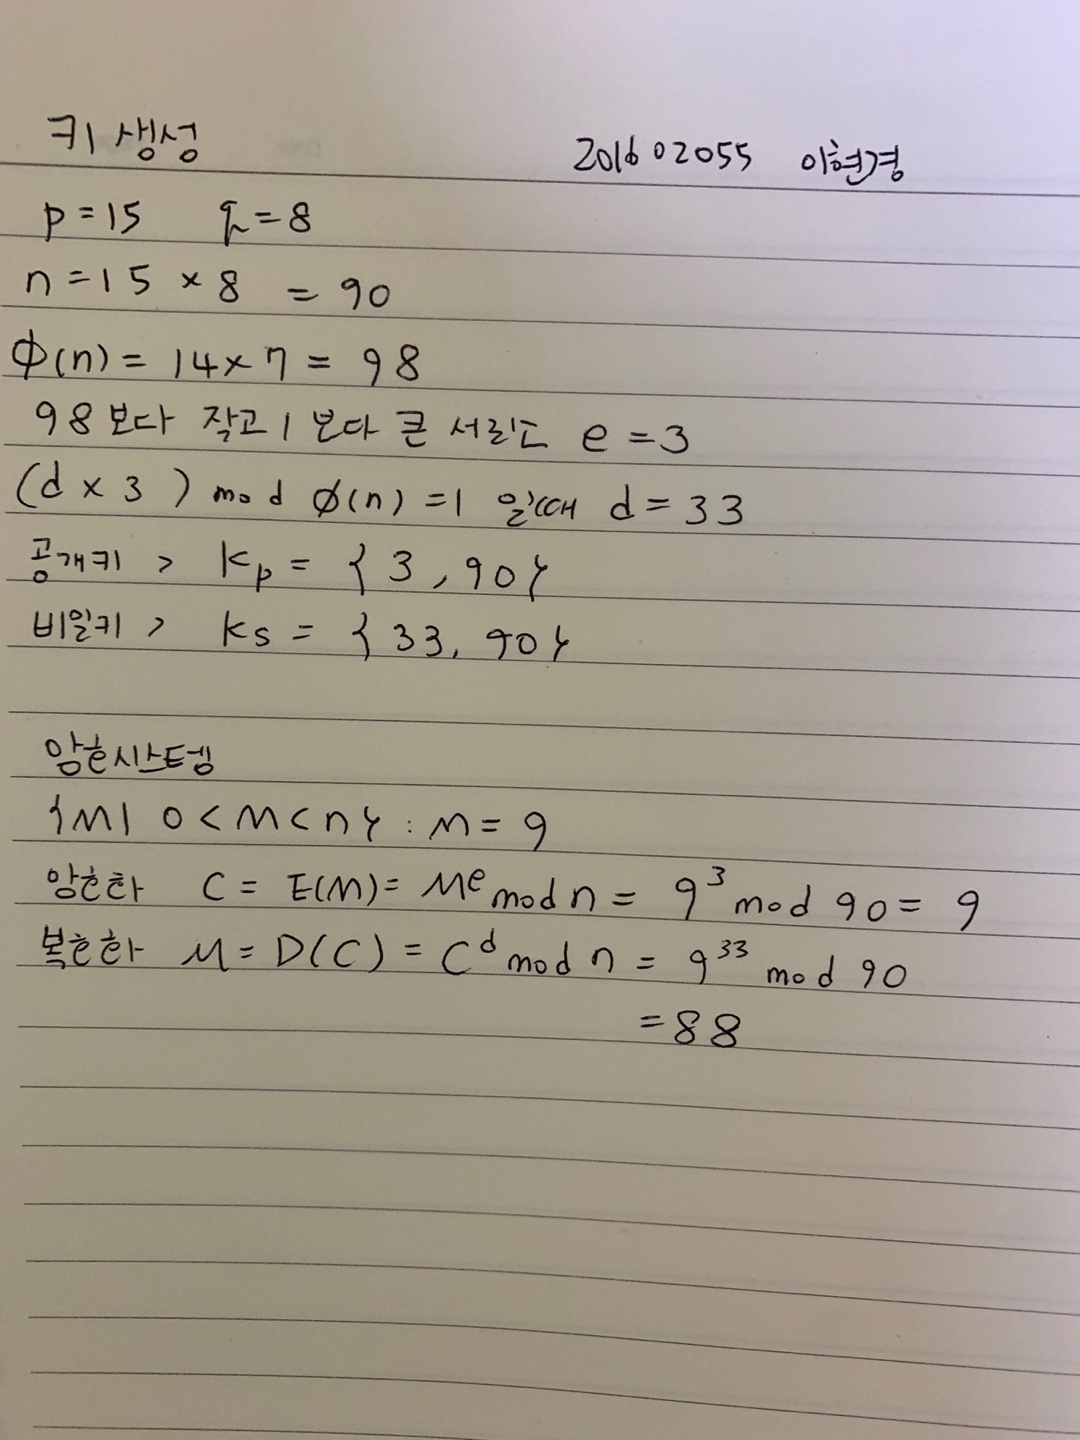 키 생성 201602055 이현경
p=15 q=8
n=15 × 8 = 90
Φ(n) = 14×7 = 98
98보다 작고 1보다 큰 서로소 e=3
(d × 3) mod Ø(n) =1 일때 d=33
공개키 > Kp = {3, 90}
비밀키 > Ks = {33, 90}
암호시스템
{M| 0<M<n} : M=9
암호화 C = E(M) = M^e mod n = 9^3 mod 90 = 9
복호화 M = D(C) = C^d mod n = 9^33 mod 90
=88